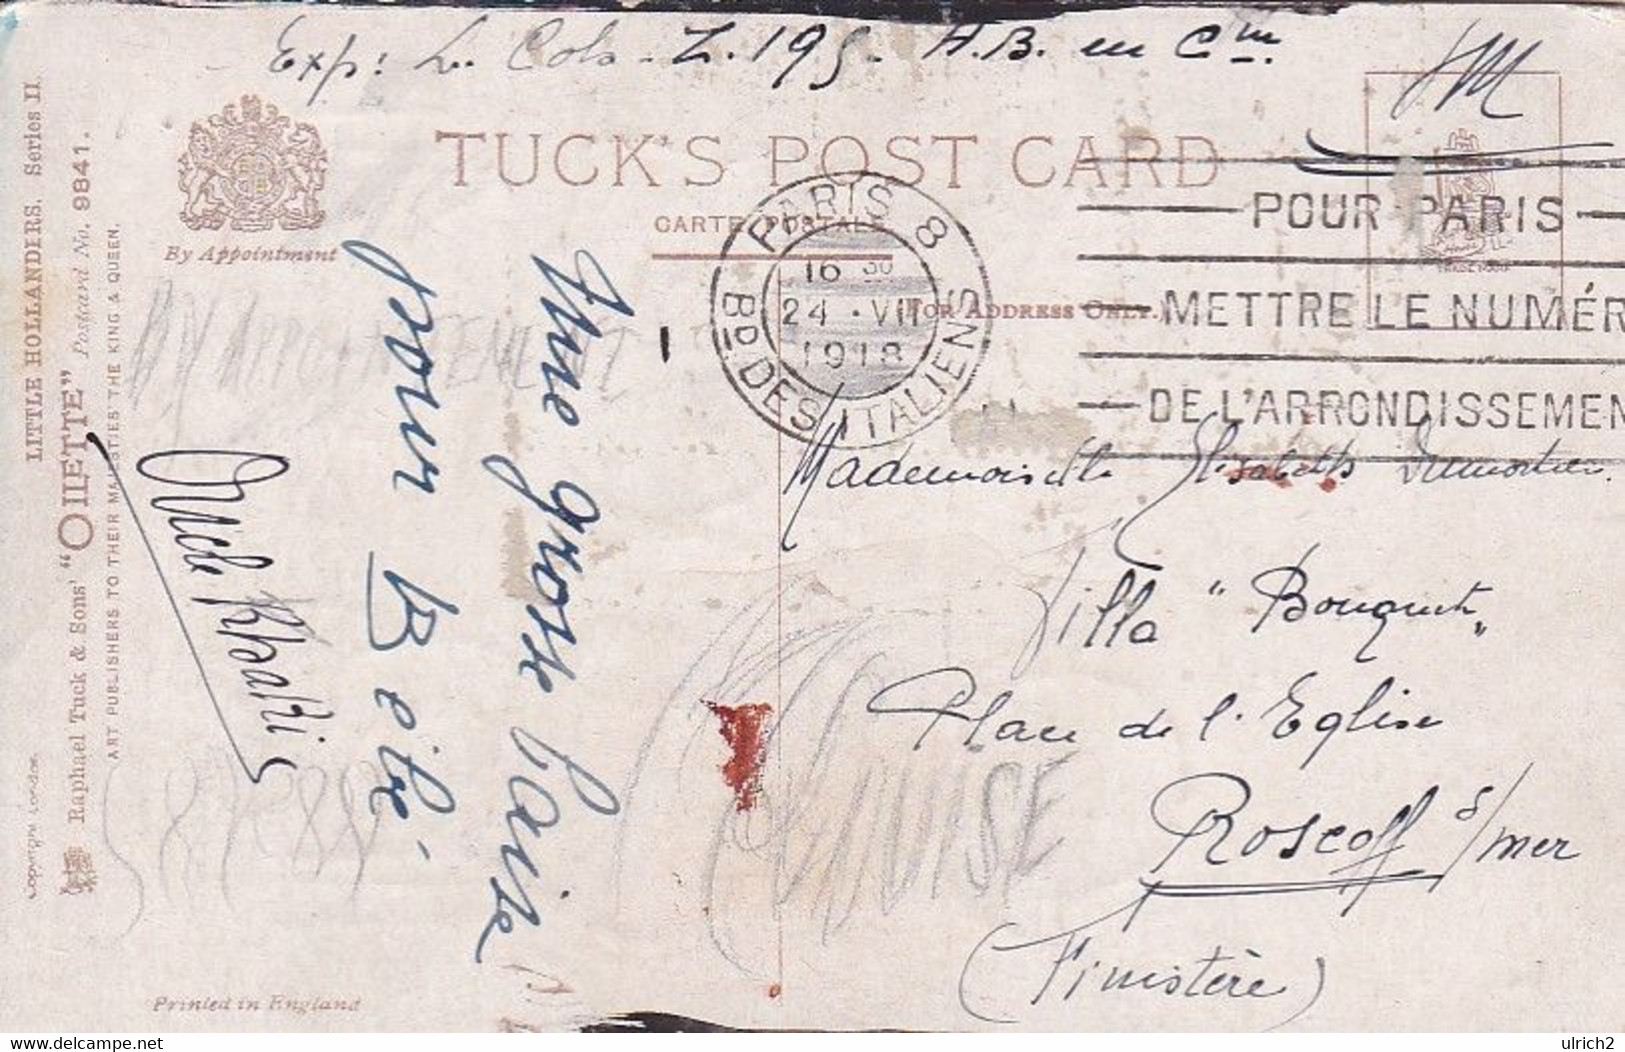 Exp: L. Cols - Z. 195 - A.B. en Cm.
FM
TUCK'S POST CARD
CARTE POSTALE
By Appointment
FOR ADDRESS ONLY.
PARIS 8
16 30
24 · VII
1918
BD DES ITALIENS
POUR PARIS
METTRE LE NUMÉR
DE L'ARRONDISSEMEN
Mademoiselle Elisabeth Dumortier
Villa "Bouquet"
Place de l'Eglise
Roscoff s/mer
(Finistère)
Une grosse baise
pour Bébé.
Oncle Khaki
LITTLE HOLLANDERS. Series II
Raphael Tuck & Sons' "OILETTE" Postcard No. 9841.
ART PUBLISHERS TO THEIR MAJESTIES THE KING & QUEEN.
Copyright London.
BY APPOINTEMENT
LOUISE
Printed in England
ulrich2
delcampe.net